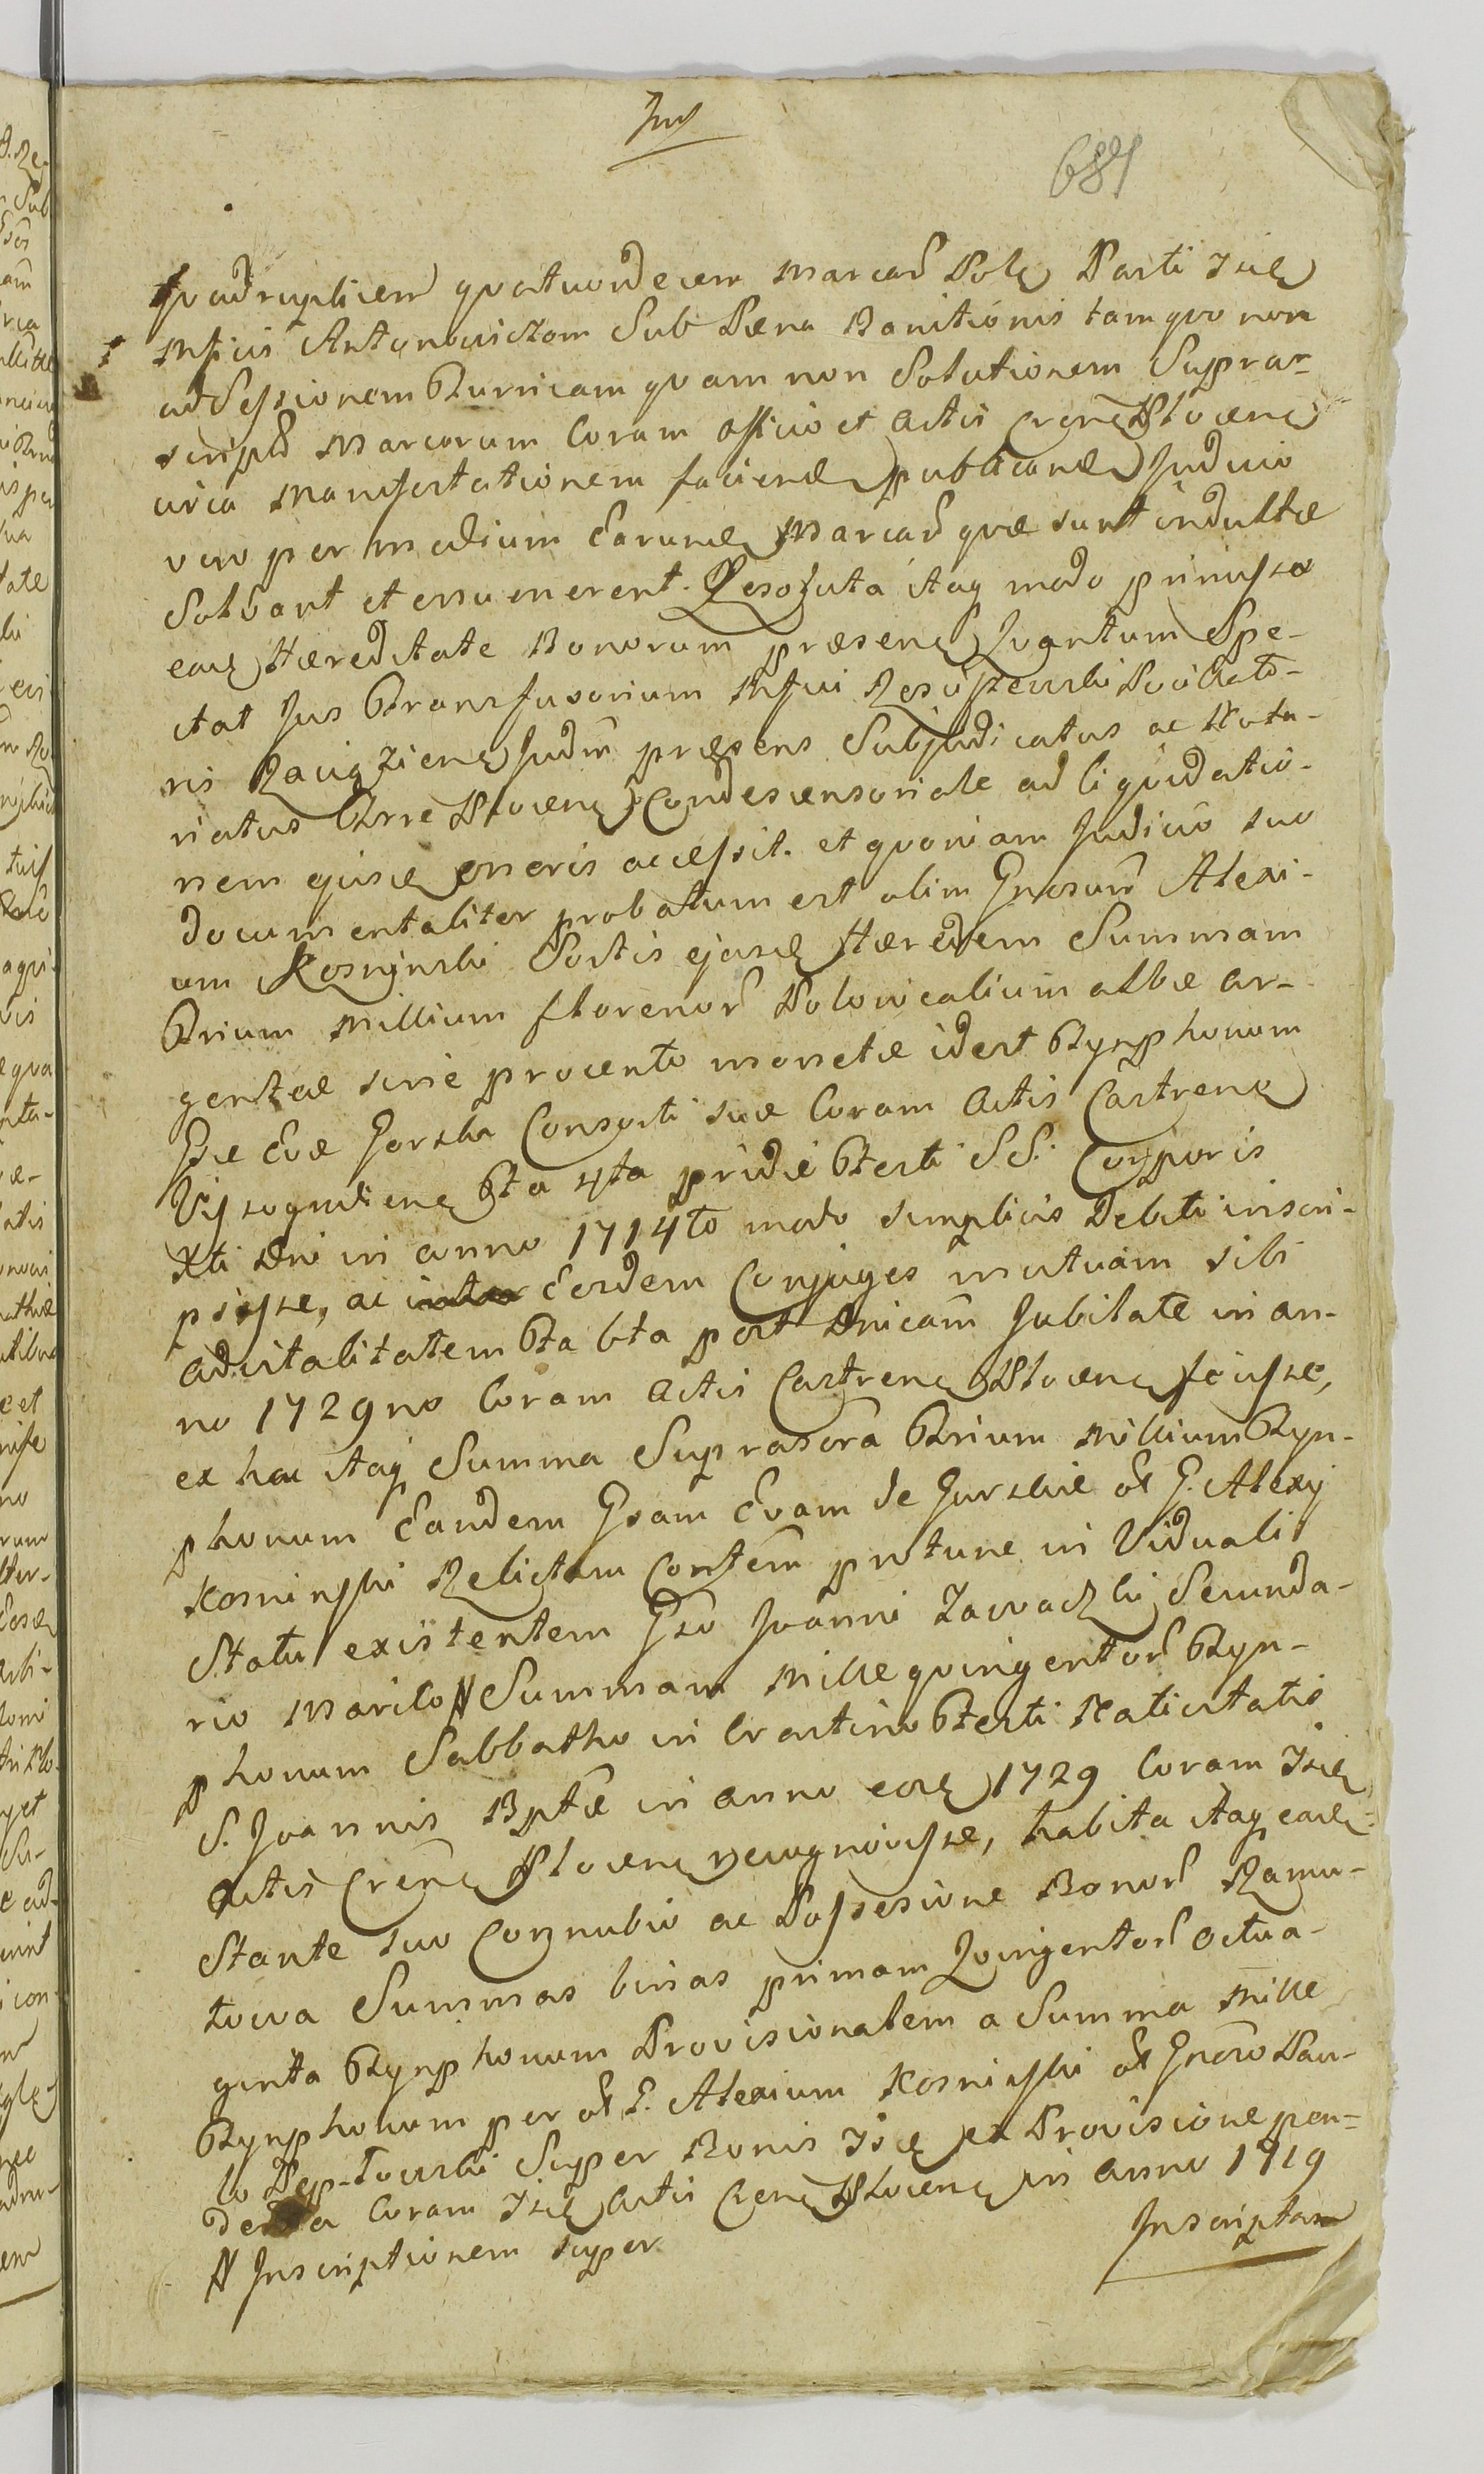 Jus
684
quadruplicem quatuordecem Marcar Pol Parti Isie
Mficis Antonovictom Sub Pæna Banitionis tam quo non
ad Sessionem Turricam quam non Solutionem Supra-
script Marcarum Coram officio et Actis Cren Plocen
circa Manifestationem faciend publicand Judicio
vero per medium Earund Marcar quæ sunt indultæ
Solvant et enumerent. Resoluta itaq modo præmisso
ead Hæreditate Bonorum præsens Quantum Spe-
ctat Jus Transfusorium Mfici Rosciszewski
ris Raciązien Judm præsens Subjudicatus ac Nota-
riatus Trre Plocen Condescensoriale ad liquidatio-
nem ejusd oneris accessit. et quoniam Judicio suo
documentaliter probatum est olim Gnosum Alexi-
um Kosminski Sortis ejusd Hæredem Summam
Trium Millium florenor Polonicalium albæ ar-
genteæ sine procento monetæ idest Tynphonum
Gsæ Evæ Gorska Consorti suæ Coram Actis Castren
Vissogrodien fta 4ta pridie festi SS. Corporis
Xti Dni in anno 1714to modo simplicis Debiti inscri-
psisse, ac Eosdem Conjuges mutuam sibi
advitalitatem fta 6ta post Dnicam Jubilate in an-
no 1729no Coram Actis Castren Plocen fecisse,
ex hac itaq Summa Suprascra Trium Millium Tyn-
phonum Eandem Gsam Evam de Gorskie ol G. Alexy
Kosminski Relictam Contem protunc in Viduali
Statu existentem Gso Joanni Zawadzki Secunda-
rio Marito # Summam Mille quingentor Tyn-
phonum Sabbatho in Crastino festi Nativitatis
S. Joannis Bptæ in anno eod 1729 Coram Isie
Actis Cren Plocen recognovisse, habita itaq ead
Stante suo Connubio ac Possesione Bonor Ramu-
towa Summas binas primam Quingentor Octua-
ginta Tynphonum Provisionalem a Summa Mille
Tynphonum per ol G. Alexium Kosminski ol Gnoro Pau-
lo Super Bonis Isie ex Provisione pen-
denta Coram Isie Actis Cren Plocen in anno 1719
# Inscriptionem super
Inscriptam